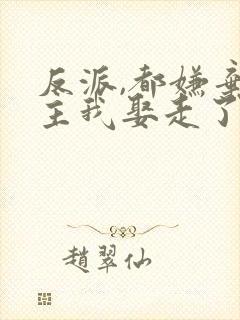 反派,都嫌弃
主我娶走了
趙翠仙